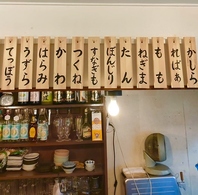 かしら
ればぁ
もも
ねぎま
たん
ぼんじり
すなぎも
つくね
かわ
はらみ
うずら
てっぽう